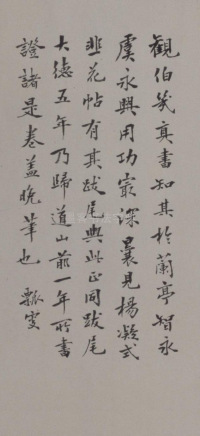 觀伯幾真書知其於蘭亭智永
虞永興用功最深曩見楊凝式
韭花帖有其跋尾與此正同跋尾
大德五年乃歸道山前一年所書
證諸是卷蓋晚筆也 瓢叟